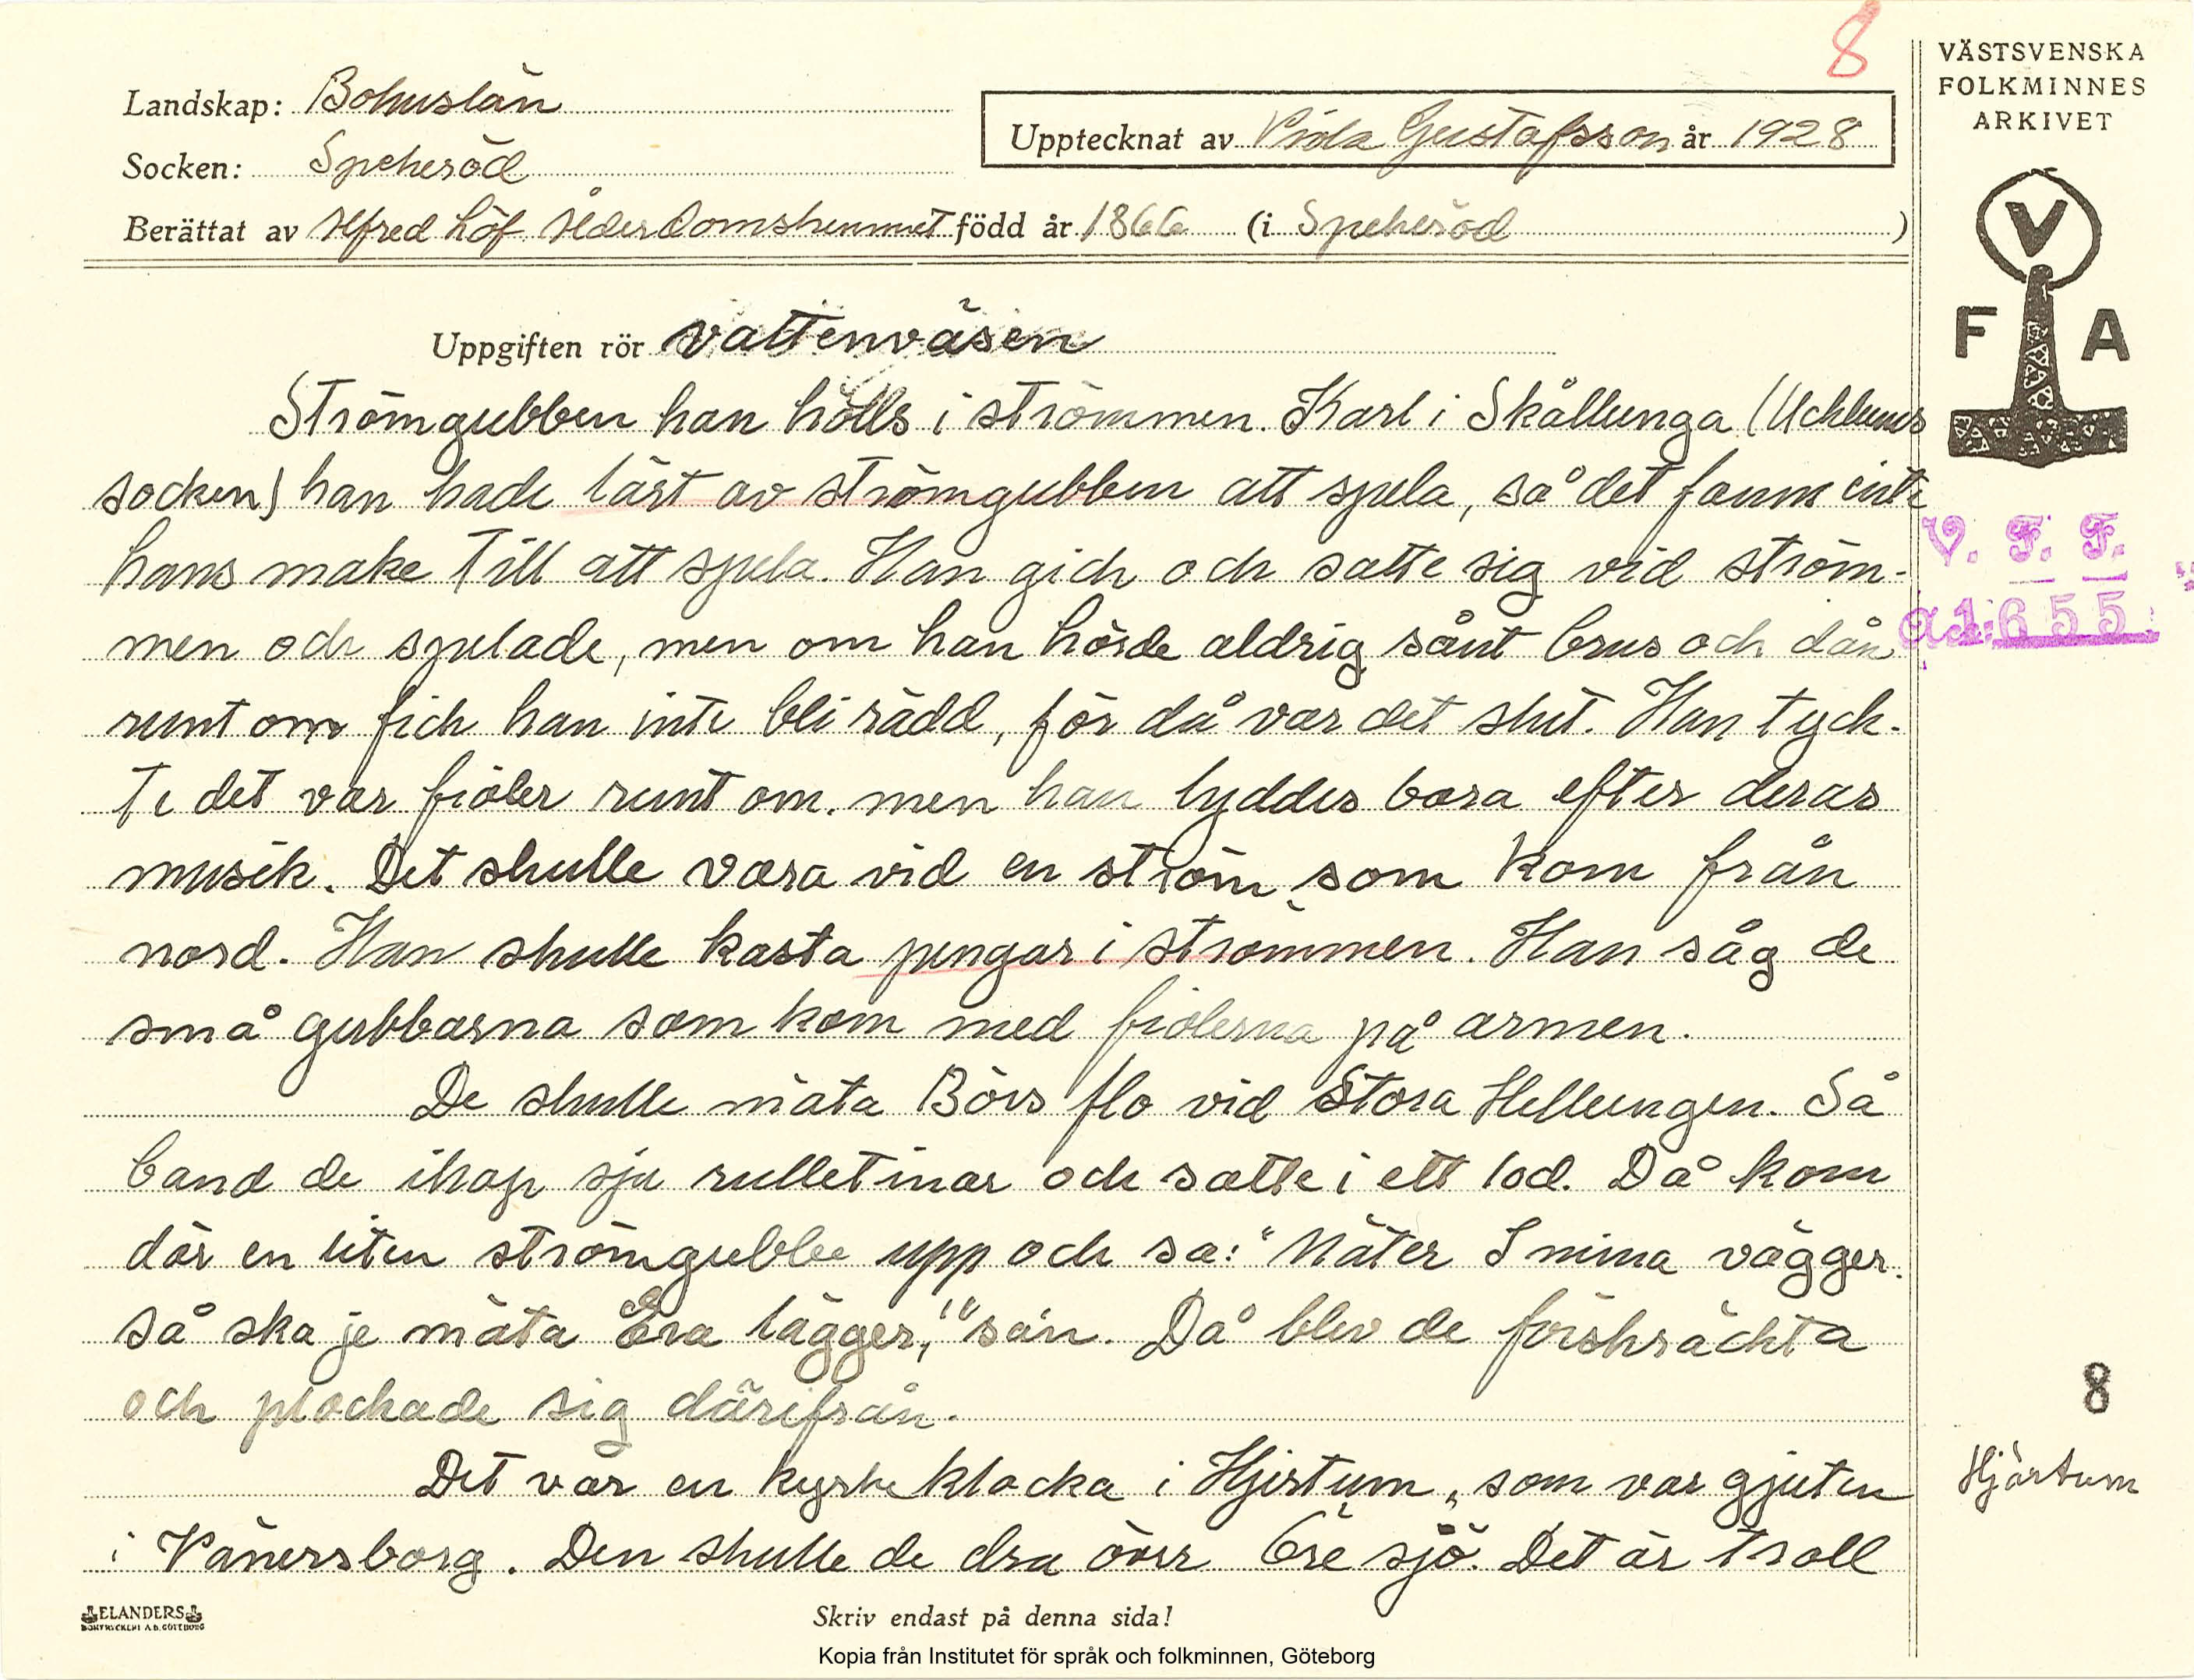 8
VÄSTSVENSKA
FOLKMINNES
ARKIVET
Landskap: Bohuslän
Upptecknat av Viola Gustafsson år 1928
Socken: Spekeröd
Berättat av Alfred Löf Ålderdomshemmet född år 1866 (i Spekeröd)
V
F A
Uppgiften rör vattenväsen
Strömgubben han hölls i strömmen. Karl i Skållunga (Ucklums
socken) han hade lärt av strömgubben att spela, så det fanns inte
hans make till att spela. Han gick och satte sig vid ström-
men och spelade, men om han hörde aldrig sånt brus och dån
runt om fick han inte bli rädd, för då var det slut. Han tyck-
te det var fioler runt om. men han lyddes bara efter deras
musik. Det skulle vara vid en ström, som kom från
nord. Han skulle kasta pengar i strömmen. Han såg de
små gubbarna som kom med fiolerna på armen.
De skulle mäta Börs flo vid Stora Hellungen. Så
band de ihop sju rulletinar och satte i ett lod. Då kom
där en liten strömgubbe upp och sa: "Mäter I mina vägger.
så ska je mäta Era lägger," sa'n. Då blev de förskräckta
och plockade sig därifrån.
Det var en kyrkeklocka i Hjertum, som var gjuten
i Vänersborg. Den skulle de dra över Öre sjö. Det är troll
V. F. F.
a1:655
8
Hjärtum
ELANDERS
BOKTRYCKERI A.B. GÖTEBORG
Skriv endast på denna sida!
Kopia från Institutet för språk och folkminnen, Göteborg